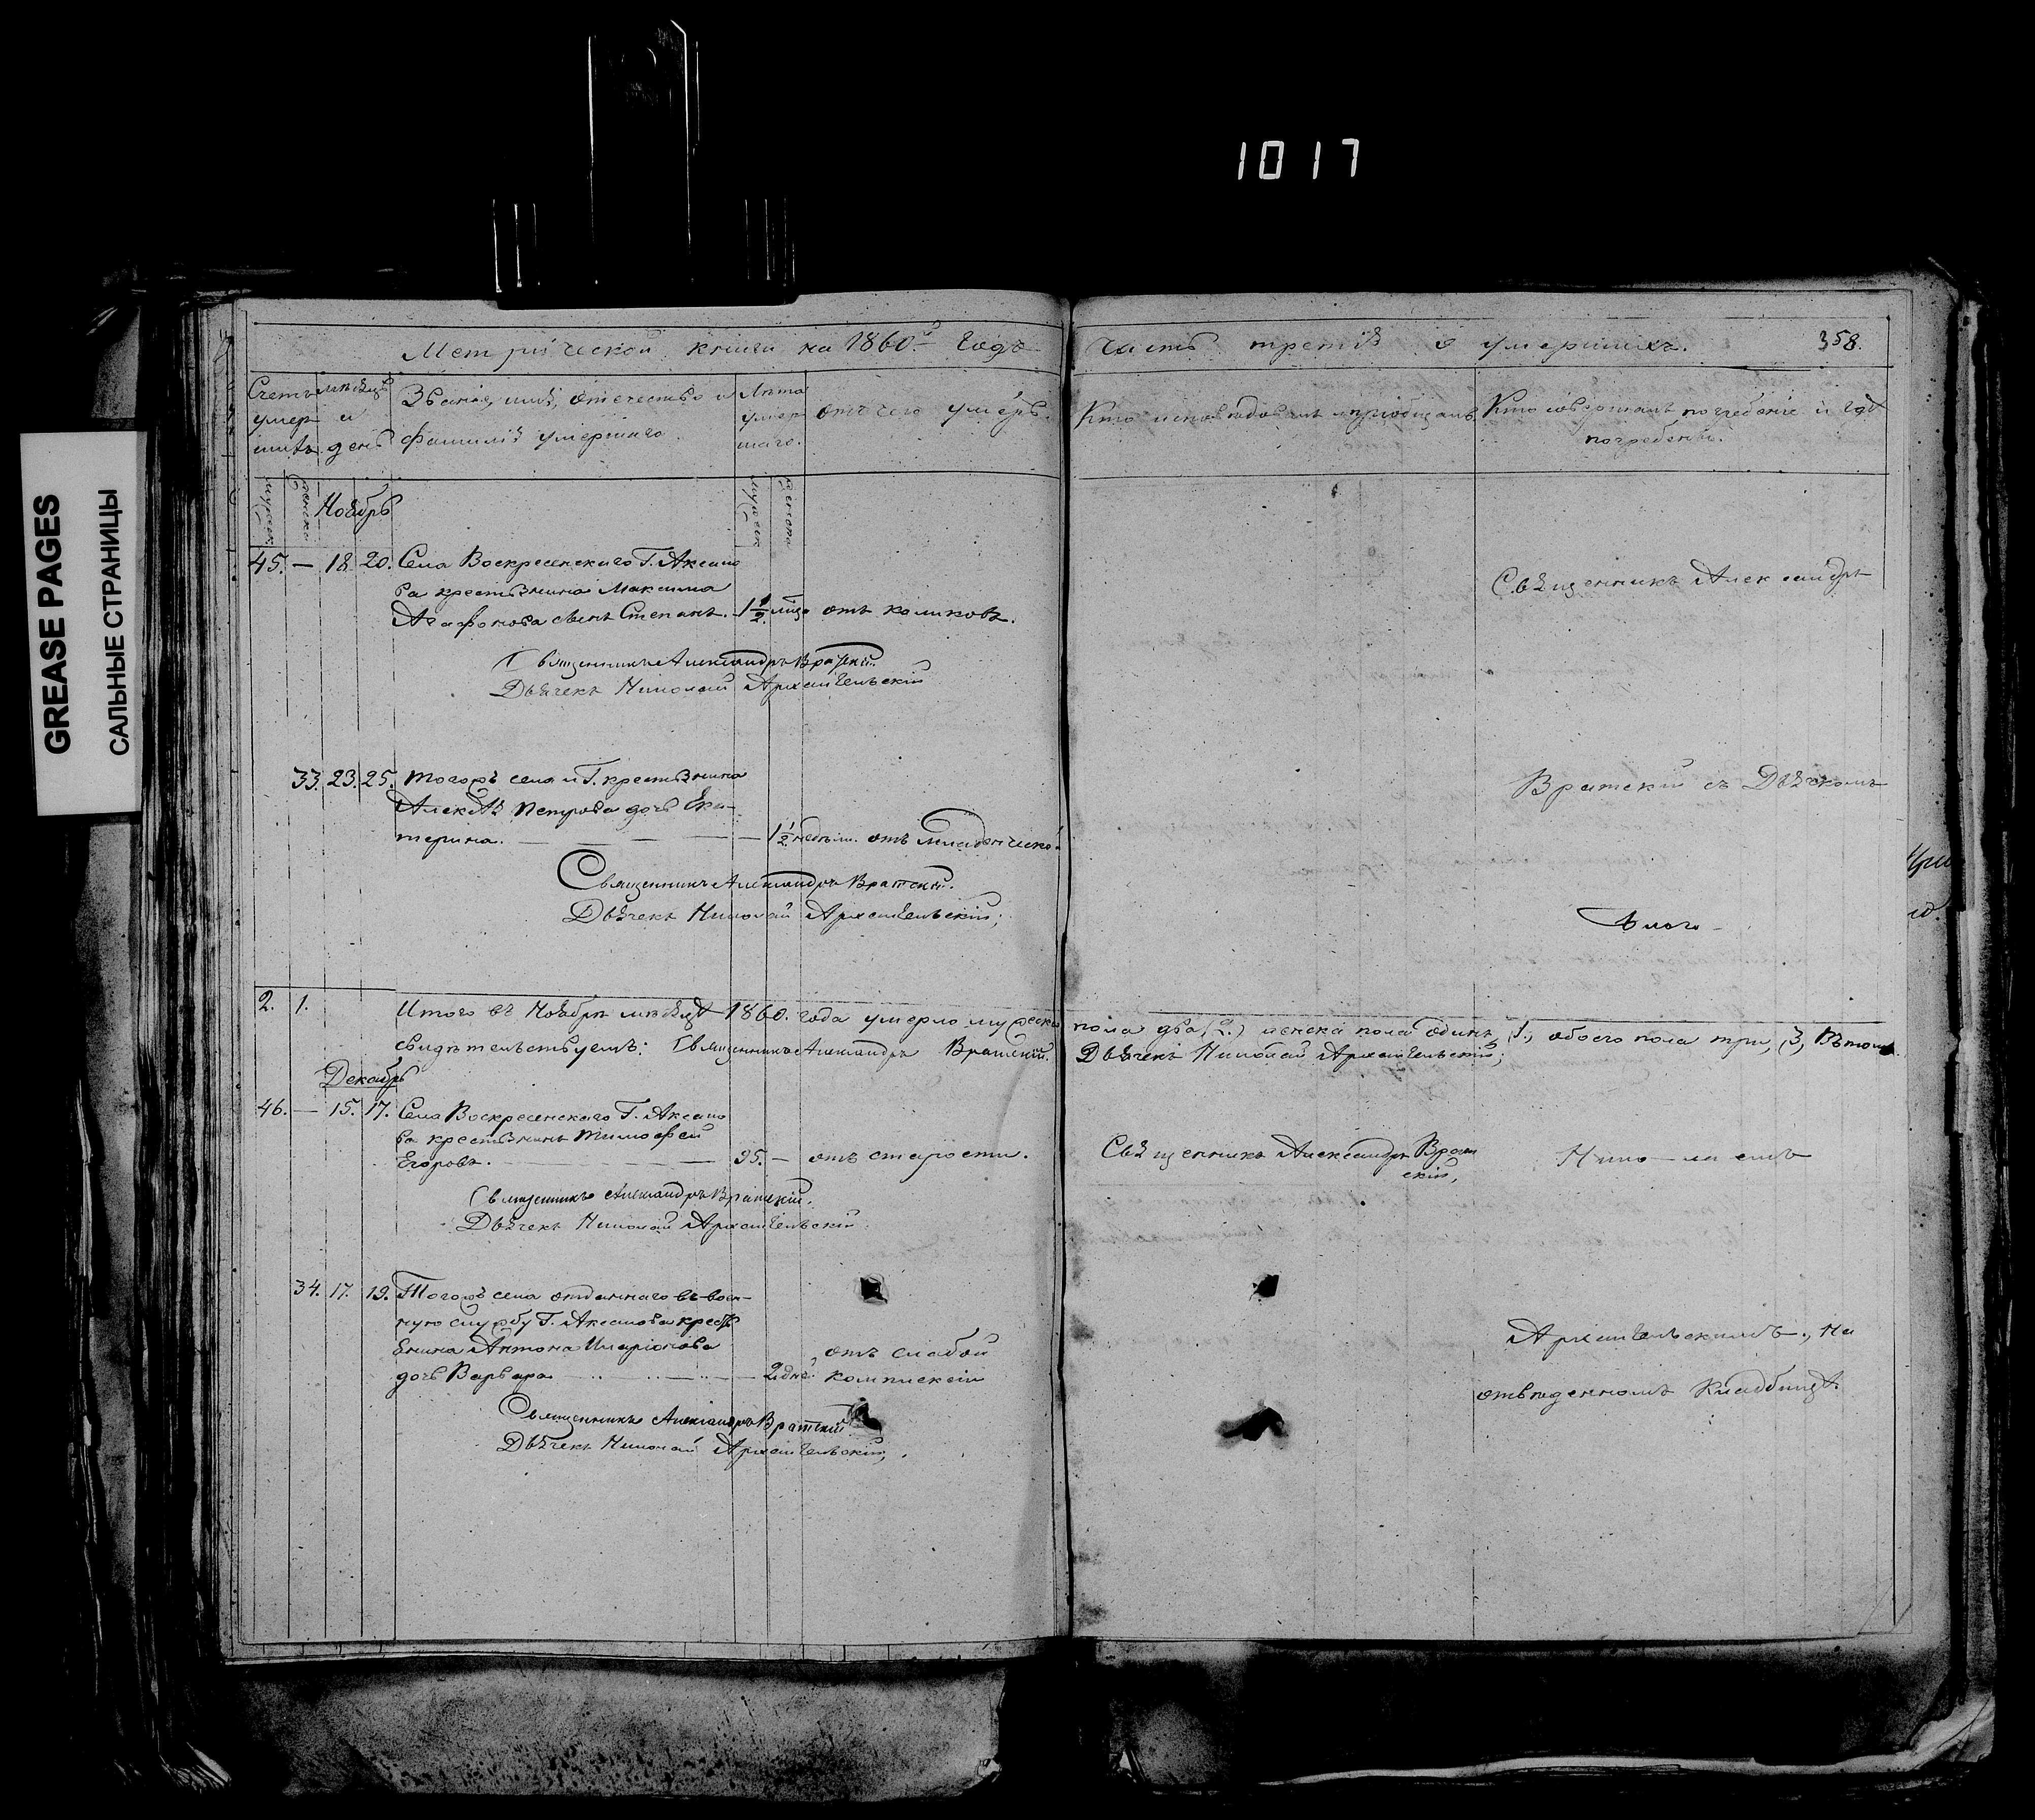 1017
GREASE PAGES
САЛЬНЫЕ СТРАНИЦЫ
Метрической книги на 1860й годъ
часть третія о умершихъ.
358.
Счетъ умершихъ
мѣсяцъ и день
Званіе, имя, отечество и
фамилія умершаго.
Лѣта
умер
шаго.
отъ чего умеръ.
Кто исповѣдовалъ и пріобщалъ.
Кто совершалъ погребеніе и гдѣ
погребены.
Ноябрь
45. — 18. 20. Села Воскресенскаго Г. Аксако
ва крестьянина Максима
Агафонова сынъ Степанъ. 1 1/2 мѣсо отъ коликовъ.
Священникъ Александръ
Священникъ Александръ Вратскій
Дьячекъ Николай Архангельскій
33. 23. 25. тогожъ села и Г. крестьянина
Алексѣя Петрова дочь Ека-
терина. — 1 1/2 недѣли. отъ младенческой
Вратскій съ Дьячкомъ
Священникъ Александръ Вратскій.
Дьячекъ Николай Архангельскій;
2. 1. Итого въ Ноябрѣ мѣсяцѣ 1860. года умерло мужеска пола два (2.) женска пола одинъ, (1., обоего пола три, (3, Въ томъ
свидѣтельствуемъ: Священникъ Александръ Вратскій. Дьячекъ Николай Архангельскій;
Декабрь
46. — 15. 17. Села Воскресенскаго Г. Аксако
ва крестьянинъ Тимофей
Егоровъ. — 95. — отъ старости.
Священникъ Александръ Врат
скій,
Нико-лаемъ
Священникъ Александръ Вратскій.
Дьячекъ Николай Архангельскій
34. 17. 19. Тогожъ села отданнаго въ воен-
ную службу Г. Аксакова кресть
янина Антона Иларіонова
дочь Варвара — 2 дней отъ слабой
комплекціи
Архангельскимъ, на
отведенномъ Кладбищѣ.
Священникъ Александръ Вратскій
Дьячекъ Николай Архангельскій,